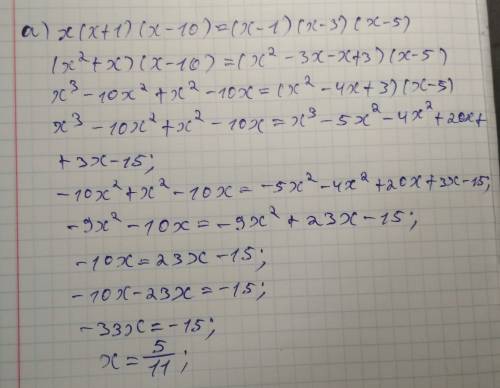 а) x(x+1)(x-10)=(x-1)(x-3)(x-5)
(x²+x)(x-10)=(x²-3x-x+3)(x-5)
x³-10x²+x²-10x=(x²-4x+3)(x-5)
x³-10x²+x²-10x=x³-5x²-4x²+20x+
+3x-15;
-10x²+x²-10x=-5x²-4x²+20x+3x-15;
-9x²-10x=-9x²+23x-15;
-10x=23x-15;
-10x-23x=-15;
-33x=-15;
x=5/11;